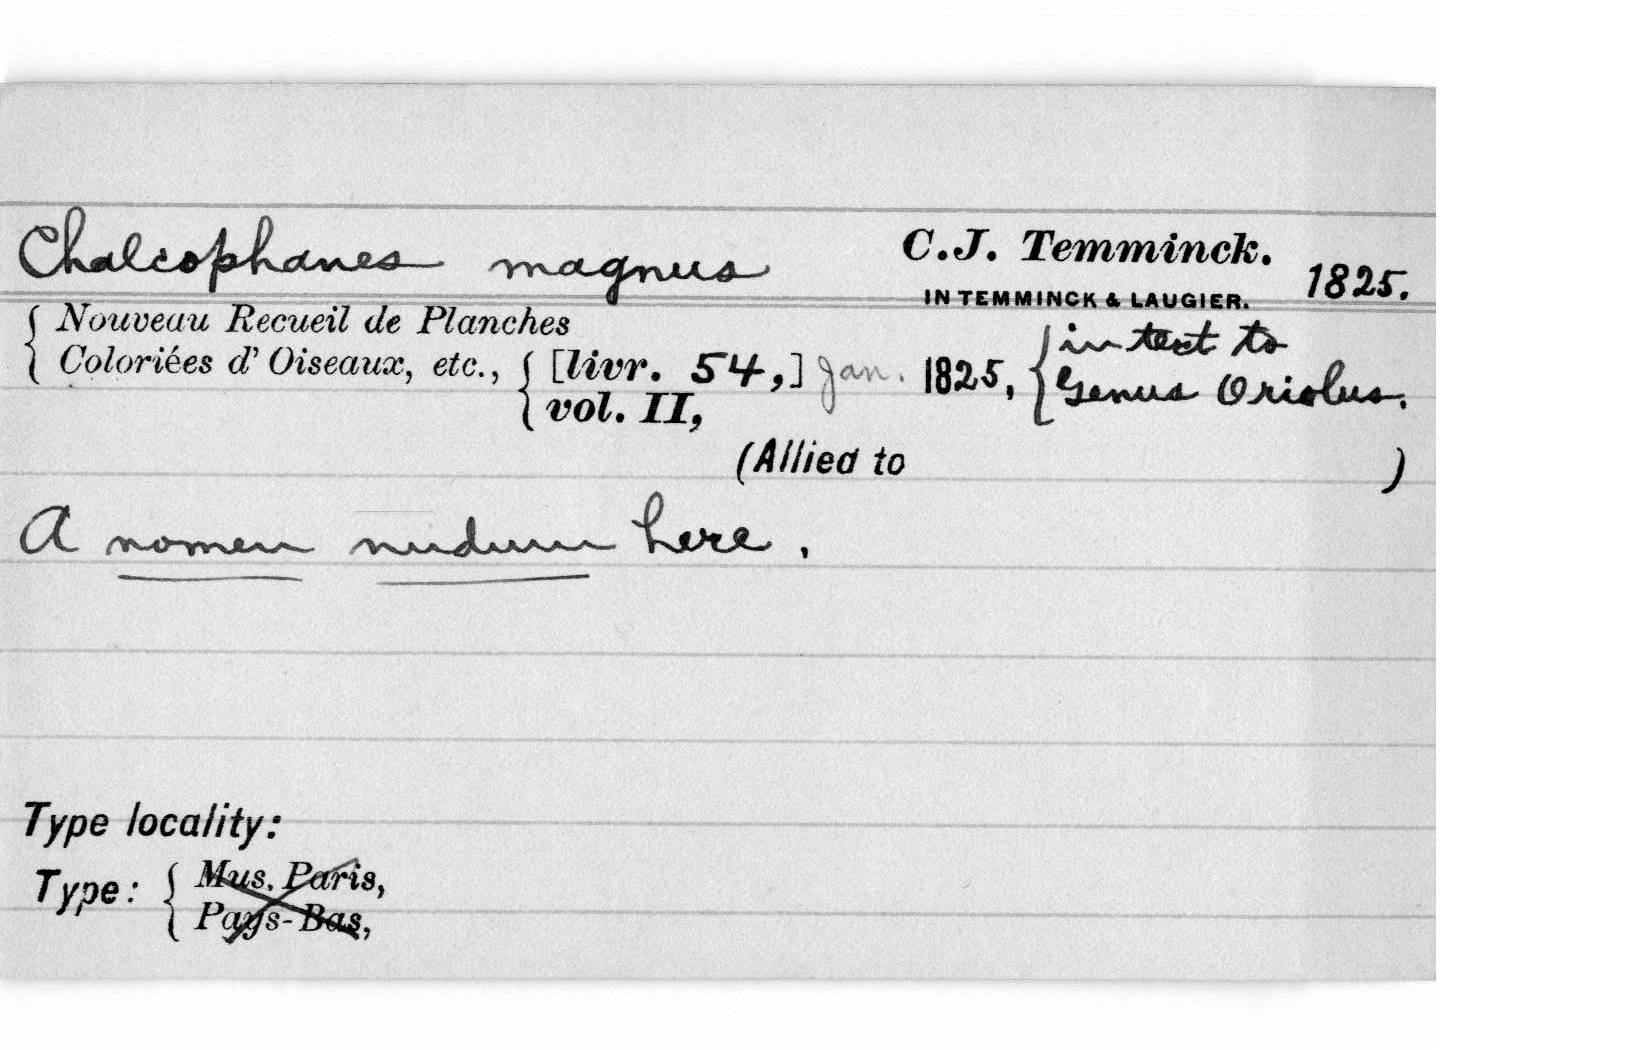 Chalcophanes magnus C.J. Temminck. 1825.
IN TEMMINCK & LAUGIER.
{ Nouveau Recueil de Planches
Coloriées d' Oiseaux, etc., { [livr. 54,] Jan. 1825, { in text to
vol. II, Genus Oriolus.
(Allied to )
A nomen nudum here.
Type locality:
Type: { Mus. Paris,
Pays-Bas,